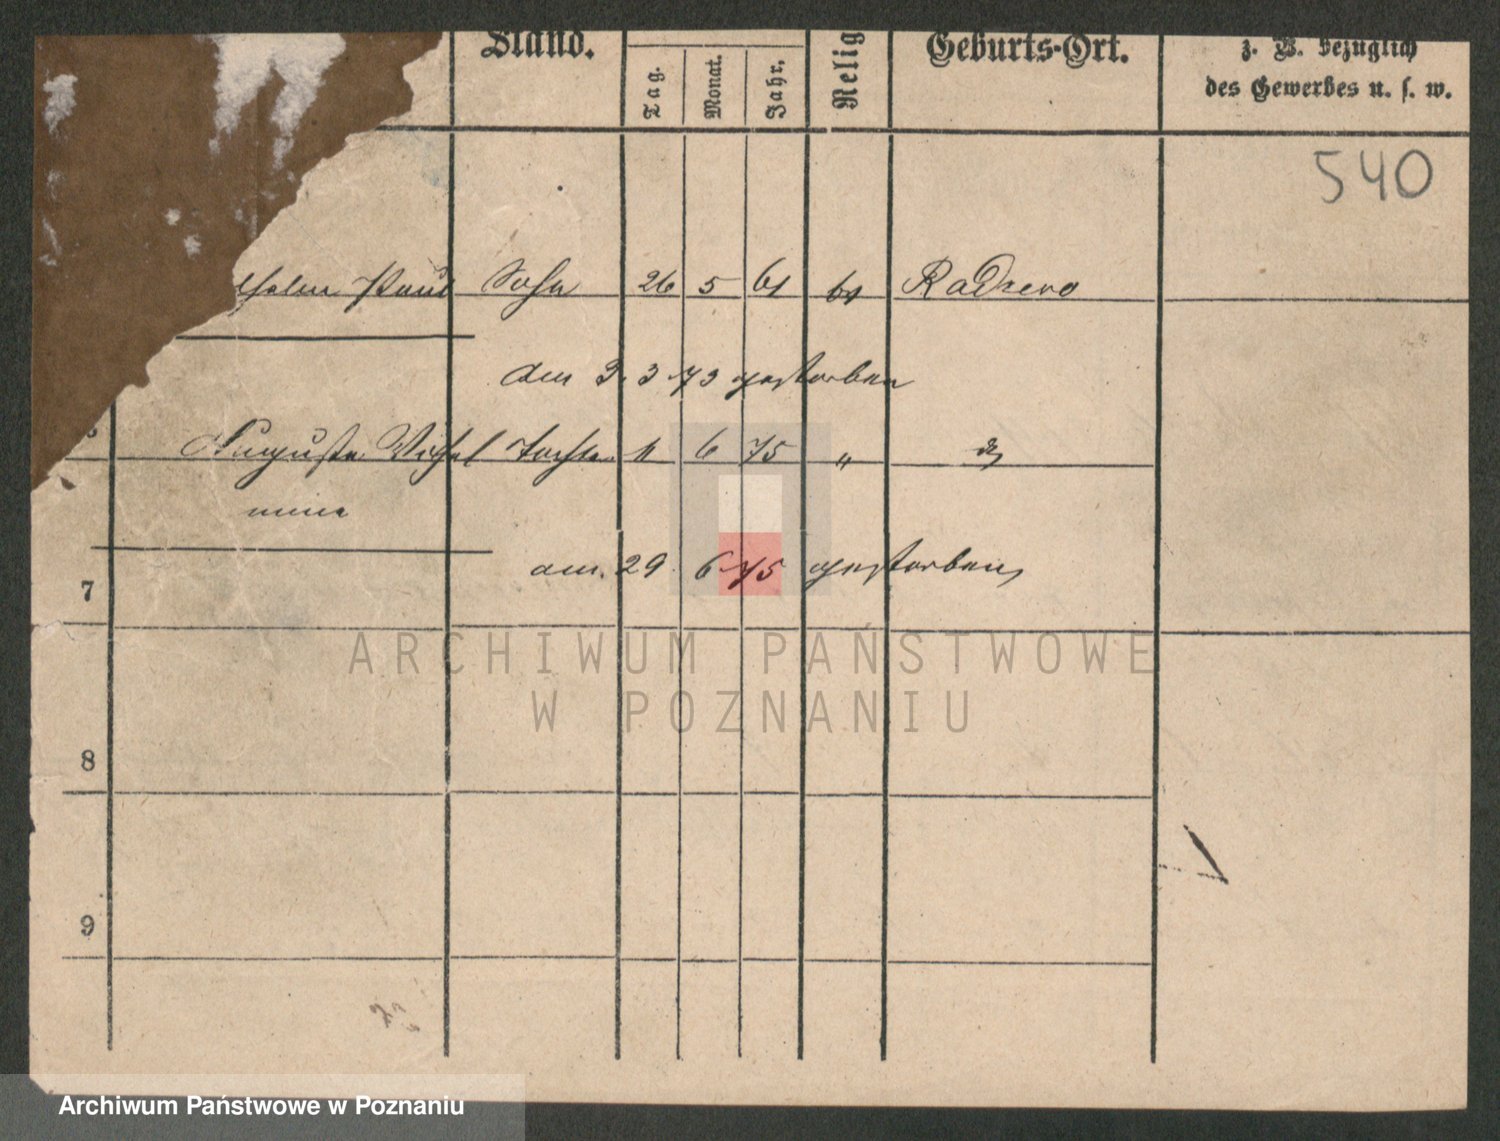 Stand.
Tag.
Monat.
Jahr.
Relig
Geburts-Ort.
z. B. bezüglich
des Gewerbes u. s. w.
540
lhelm Paul Sohn 26 5 61 Radzewo
am 3. 3 73 gestorben
Auguste Wilhel Tochter 11 6 75 "
mine
am 29 6 75 gestorben
7
8
9
ARCHIWUM PAŃSTWOWE
W POZNANIU
Archiwum Państwowe w Poznaniu